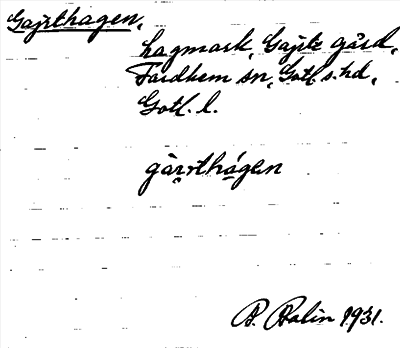 Gajrthagen,
hagmark, Gajrtz gård,
Fardhem sn, Gotl. s. hd,
Gotl. l.
gàrrthágen
B. Balin 1931.